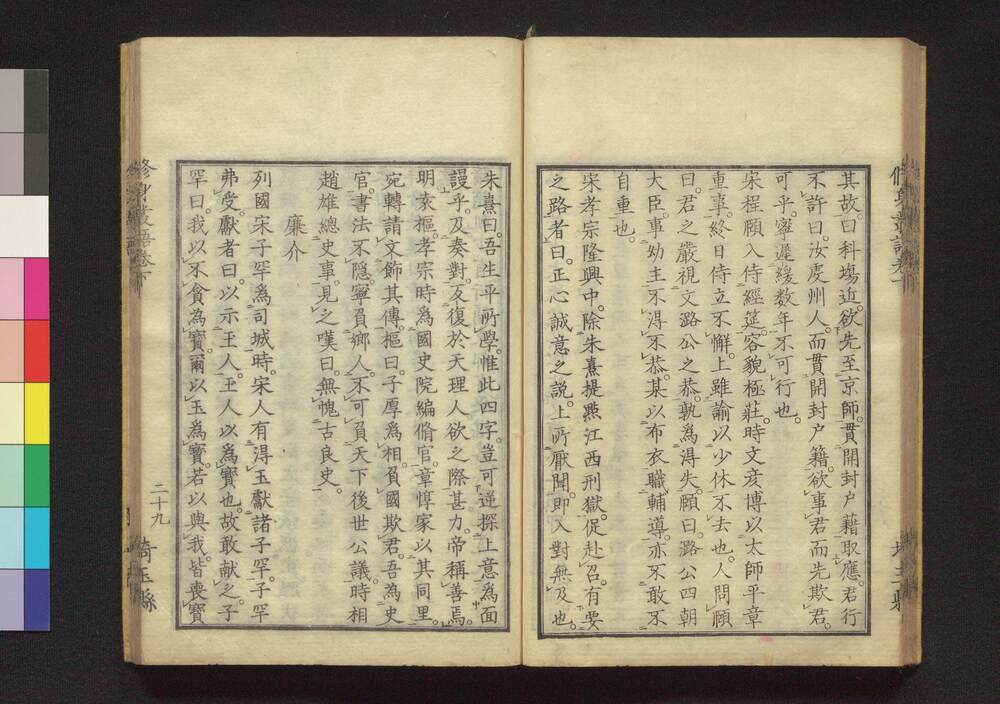 其故。曰科塲近。欲先至京師。貫開封戸藉取應。君行
不許。曰。汝虔州人。而貫開封户籍。欲事君而先欺君。
可乎。寧遲緩数年。不可行也。
宋程頤入侍經筵。容貌極莊。時文彦博以太師平章
重事。終日侍立不懈。上雖諭以少休不去也。人問頤
曰。君之嚴視文路公之恭。孰為得失。頤曰。路公四朝
大臣。事幼主不得不恭。某以布衣職輔導。亦不敢不
自重也
宋孝宗隆興中。除朱熹提㸃江西刑獄。促赴召。有要
之路者。曰。正心誠意之説。上所厭聞。即入對無及也。
朱熹曰。吾生平所學。惟此四字。豈可逆探上意為面
謾乎。及奏對。反復於天理人欲之際甚力。帝稱善焉。
明索樞。孝宗時為國史院編脩官。章惇家以其同里。
宛轉請文飾其傳。樞曰。子厚為相。負國欺君。吾為史
官。書法不隠。寧負郷人。不可負天下後世公議。時相
趙雄總史事。見之嘆曰。無愧古良史。
廉介
列國宋子罕爲司城時。宋人有得玉獻諸子罕。子罕
弗受。獻者曰。以示玉人。玉人以為寶也。故敢献之。子
罕曰。我以不貪為寶。爾以玉為寶。若以與我。皆喪寶
二十九
埼玉縣